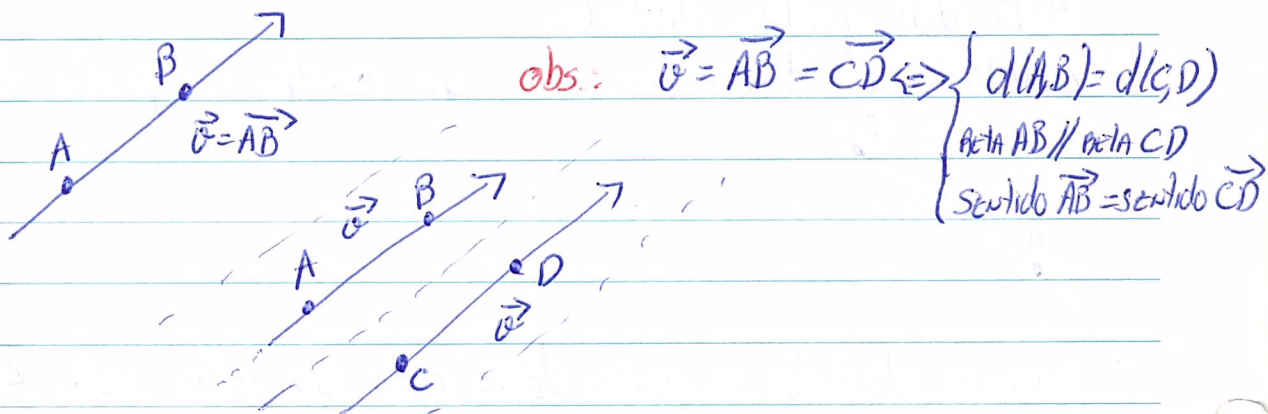 B
A
v⃗=AB⃗
obs.: v⃗ = AB⃗ = CD⃗ <=> { d(A,B)= d(C,D)
RETA AB // RETA CD
SENTIDO AB⃗ = SENTIDO CD⃗
B
v⃗
A
D
v⃗
C